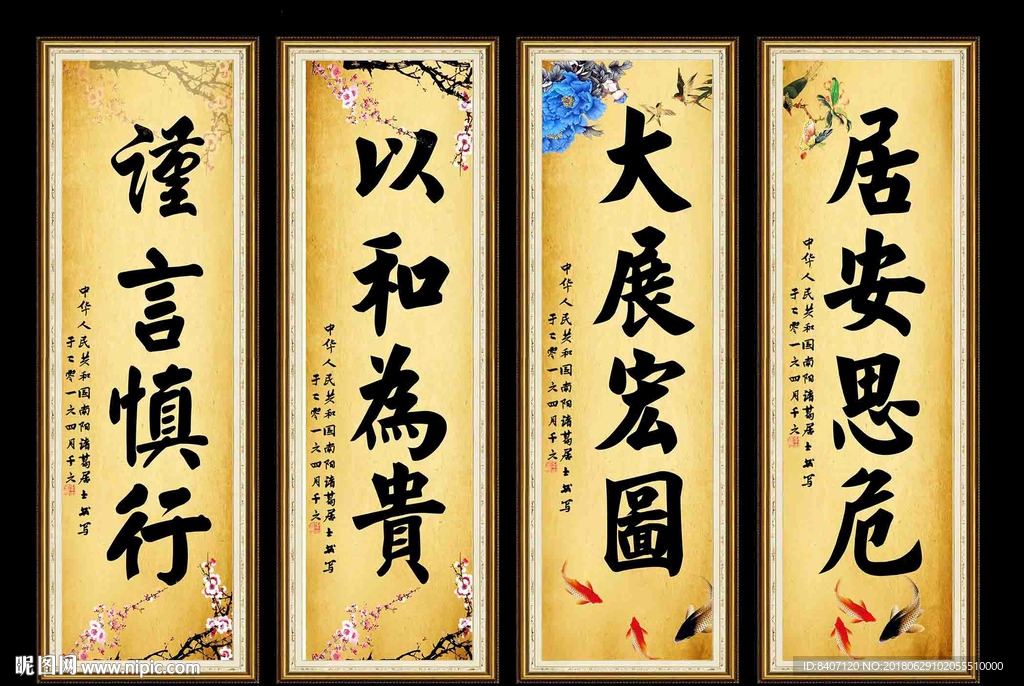 居安思危
中华人民共和国南阳诸葛居士书写
于二零一六四月千文
大展宏圖
中华人民共和国南阳诸葛居士书写
于二零一六四月千文
以和為貴
中华人民共和国南阳诸葛居士书写
于二零一六四月千文
谨言慎行
中华人民共和国南阳诸葛居士书写
于二零一六四月千文
昵图网 www.nipic.com
ID:8407120 NO:20180629102055510000